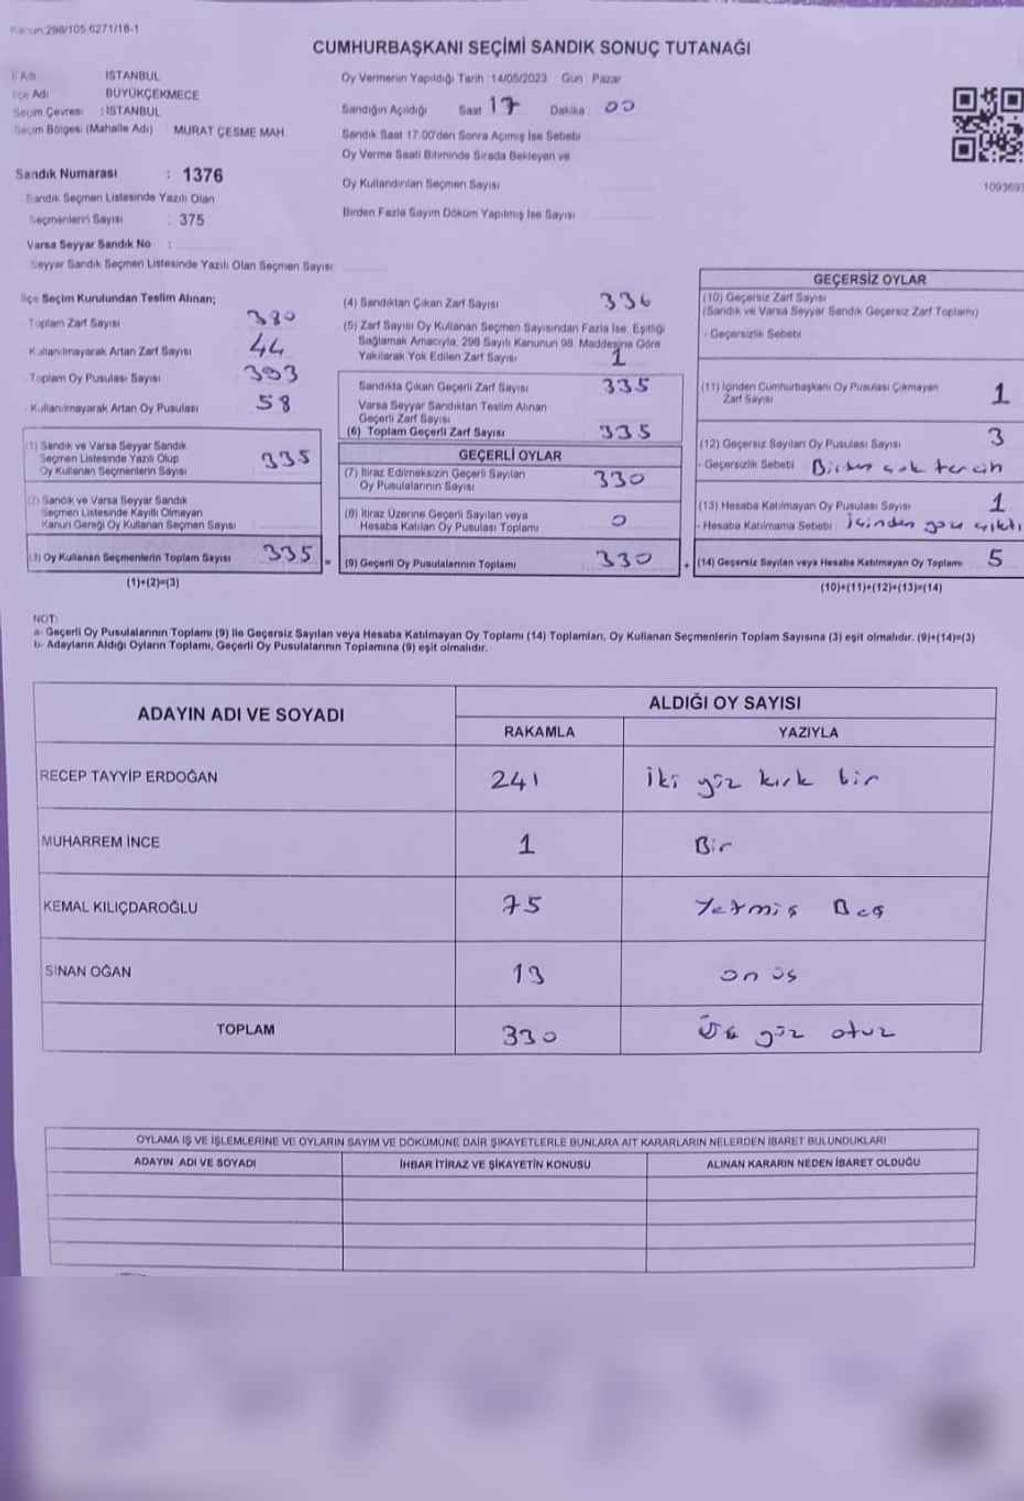 Kanun:298/105 6271/18-1
CUMHURBAŞKANI SEÇİMİ SANDIK SONUÇ TUTANAĞI
İl Adı İSTANBUL
İlçe Adı BÜYÜKÇEKMECE
Seçim Çevresi : İSTANBUL
Seçim Bölgesi (Mahalle Adı) MURAT ÇEŞME MAH.
Sandık Numarası : 1376
Sandık Seçmen Listesinde Yazılı Olan
Seçmenlerin Sayısı : 375
Varsa Seyyar Sandık No :
Seyyar Sandık Seçmen Listesinde Yazılı Olan Seçmen Sayısı
Oy Vermenin Yapıldığı Tarih :14/05/2023 Gün : Pazar
Sandığın Açıldığı Saat 17 Dakika : 00
Sandık Saat 17:00'den Sonra Açılmış İse Sebebi
Oy Verme Saati Bitiminde Sırada Bekleyen ve
Oy Kullandırılan Seçmen Sayısı
Birden Fazla Sayım Döküm Yapılmış İse Sayısı
109369
İlçe Seçim Kurulundan Teslim Alınan;
Toplam Zarf Sayısı 380
Kullanılmayarak Artan Zarf Sayısı 44
Toplam Oy Pusulası Sayısı 393
Kullanılmayarak Artan Oy Pusulası 58
(1) Sandık ve Varsa Seyyar Sandık
Seçmen Listesinde Yazılı Olup
Oy Kullanan Seçmenlerin Sayısı 335
(2) Sandık ve Varsa Seyyar Sandık
Seçmen Listesinde Kayıtlı Olmayan
Kanun Gereği Oy Kullanan Seçmen Sayısı
(3) Oy Kullanan Seçmenlerin Toplam Sayısı 335
(1)+(2)=(3)
(4) Sandıktan Çıkan Zarf Sayısı 336
(5) Zarf Sayısı Oy Kullanan Seçmen Sayısından Fazla İse; Eşitliği
Sağlamak Amacıyla, 298 Sayılı Kanunun 98. Maddesine Göre
Yakılarak Yok Edilen Zarf Sayısı 1
Sandıkta Çıkan Geçerli Zarf Sayısı 335
Varsa Seyyar Sandıktan Teslim Alınan
Geçerli Zarf Sayısı
(6) Toplam Geçerli Zarf Sayısı 335
GEÇERLİ OYLAR
(7) İtiraz Edilmeksizin Geçerli Sayılan
Oy Pusulalarının Sayısı 330
(8) İtiraz Üzerine Geçerli Sayılan veya
Hesaba Katılan Oy Pusulası Toplamı 0
= (9) Geçerli Oy Pusulalarının Toplamı 330
GEÇERSİZ OYLAR
(10) Geçersiz Zarf Sayısı
(Sandık ve Varsa Seyyar Sandık Geçersiz Zarf Toplamı)
- Geçersizlik Sebebi
(11) İçinden Cumhurbaşkanı Oy Pusulası Çıkmayan
Zarf Sayısı 1
(12) Geçersiz Sayılan Oy Pusulası Sayısı 3
- Geçersizlik Sebebi Birden çok tercih
(13) Hesaba Katılmayan Oy Pusulası Sayısı 1
- Hesaba Katılmama Sebebi İçinden çıktı
+ (14) Geçersiz Sayılan veya Hesaba Katılmayan Oy Toplamı 5
(10)+(11)+(12)+(13)=(14)
NOT:
a- Geçerli Oy Pusulalarının Toplamı (9) ile Geçersiz Sayılan veya Hesaba Katılmayan Oy Toplamı (14) Toplamları, Oy Kullanan Seçmenlerin Toplam Sayısına (3) eşit olmalıdır. (9)+(14)=(3)
b- Adayların Aldığı Oyların Toplamı, Geçerli Oy Pusulalarının Toplamına (9) eşit olmalıdır.
ADAYIN ADI VE SOYADI ALDIĞI OY SAYISI
RAKAMLA YAZIYLA
RECEP TAYYİP ERDOĞAN 241 iki yüz kırk bir
MUHARREM İNCE 1 Bir
KEMAL KILIÇDAROĞLU 75 Yetmiş Beş
SİNAN OĞAN 13 on üç
TOPLAM 330 Üç yüz otuz
OYLAMA İŞ VE İŞLEMLERİNE VE OYLARIN SAYIM VE DÖKÜMÜNE DAİR ŞİKAYETLERLE BUNLARA AİT KARARLARIN NELERDEN İBARET BULUNDUKLARI
ADAYIN ADI VE SOYADI İHBAR İTİRAZ VE ŞİKAYETİN KONUSU ALINAN KARARIN NEDEN İBARET OLDUĞU